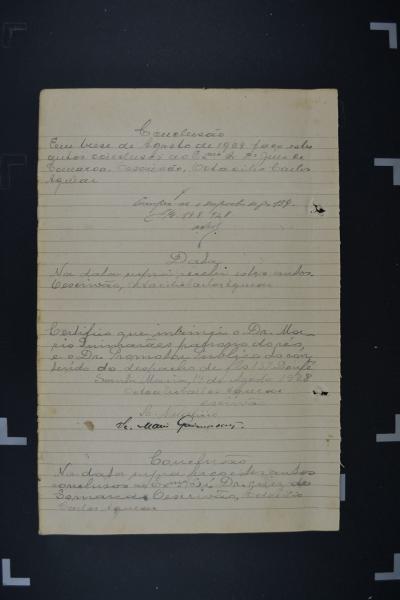 Conclusão
Em treze de Agosto de 1928 faço estes
autos conclusos ao Exmo Sr. Dr. Juiz da
Comarca. Oescrivão, Octacilio Carlos
Aguiar
Cumpra-se o despacho de fls 137.
14. 8. 928
Data
Na data supra recebi estes autos.
Oescrivão, Octacilio Carlos Aguiar
Certifico que intimei o Dr. Ma-
rio Guimarães patrono do réo,
e o Dr. Promotor Publico do con-
teudo do despacho de fls 137 Dou fé
Santa Maria, 14 de Agosto 1928
Octacilio Carlos Aguiar
escrivão
Dr. Mario Guimarães.
Conclusão
Na data supra faço estes autos
conclusos ao Exmo Sr. Dr. Juiz da
Comarca Oescrivão, Octacilio
Carlos Aguiar